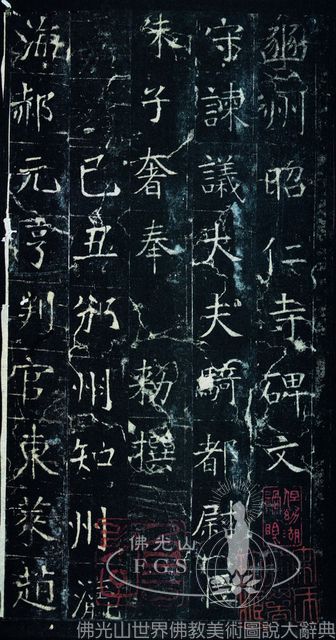 豳州昭仁寺碑文
守諫議大夫騎都尉臣
朱子奢奉 勅撰
己丑邠州知州渤
海郝元亨判官東萊趙
佛光山
F.G.S
佛光山世界佛教美術圖說大辭典